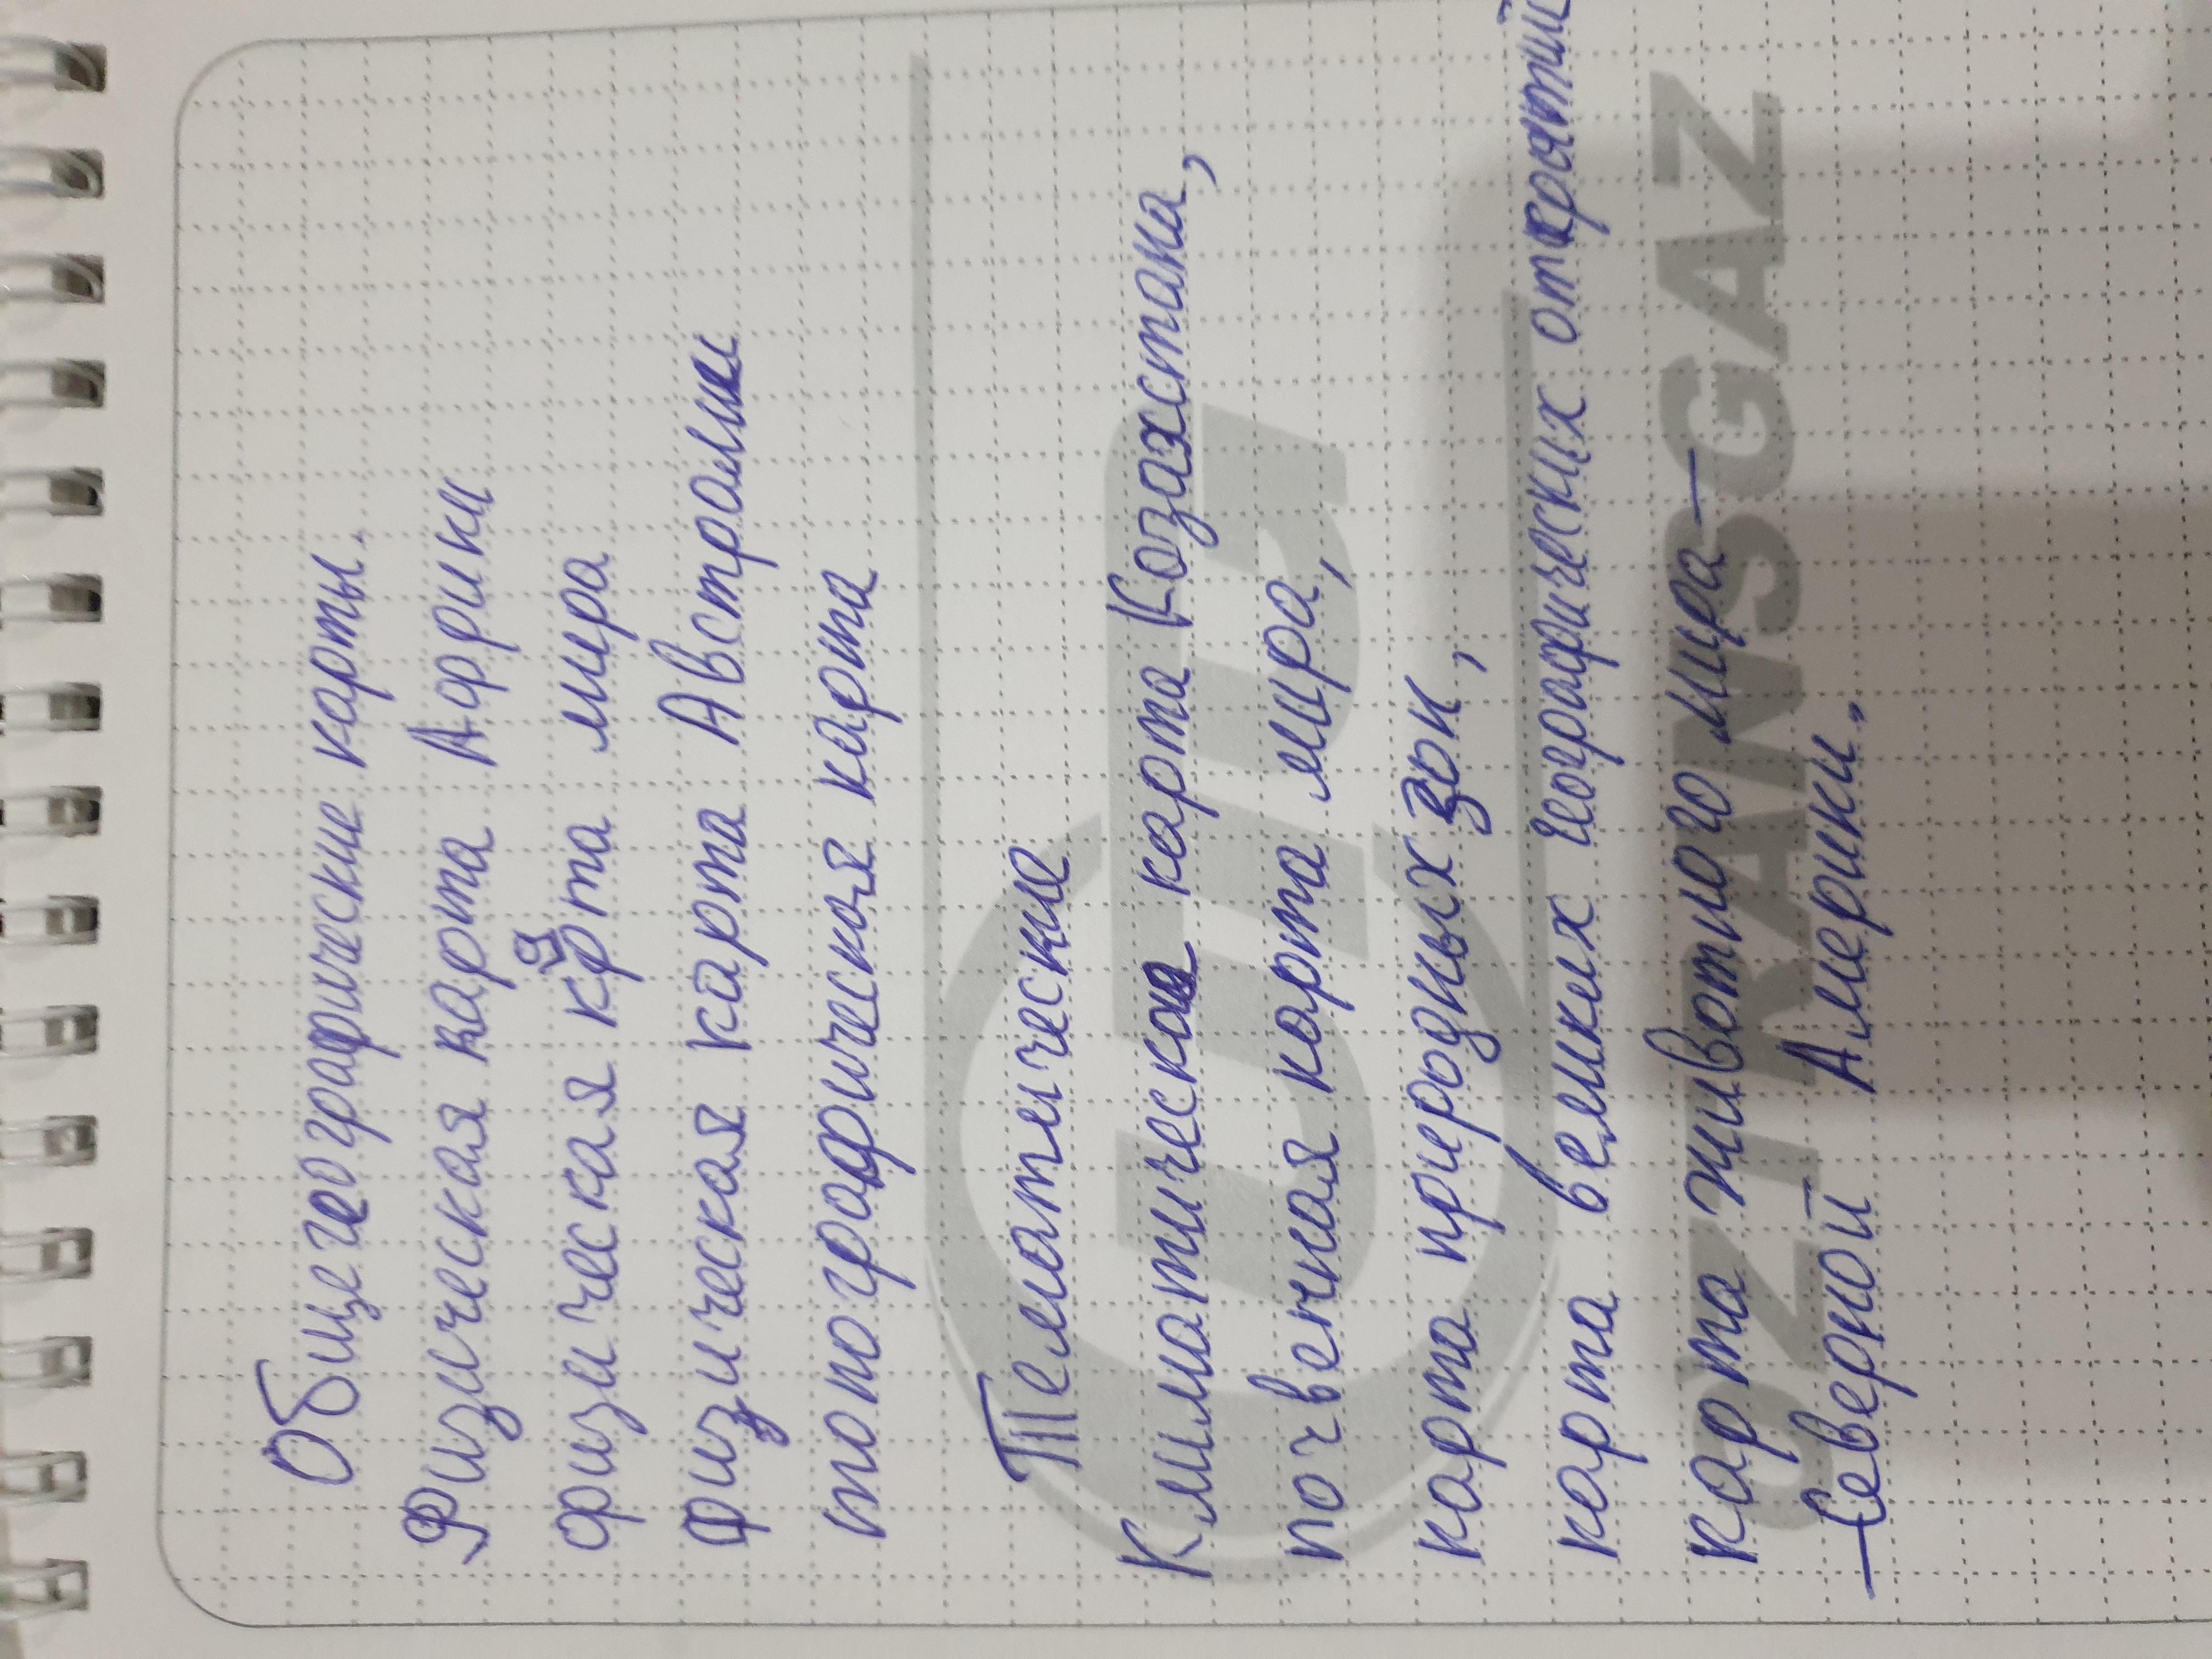 Общегеографические карты.
Физическая карта Африки
физическая карта мира
Физическая карта Австралии
топографическая карта
Тематические
Климатическая карта Казахстана,
почвенная карта мира,
карта природных зон,
карта великих географических открытий
карта животного мира —
— Северной Америки.
UTG
UZTRANSGAZ